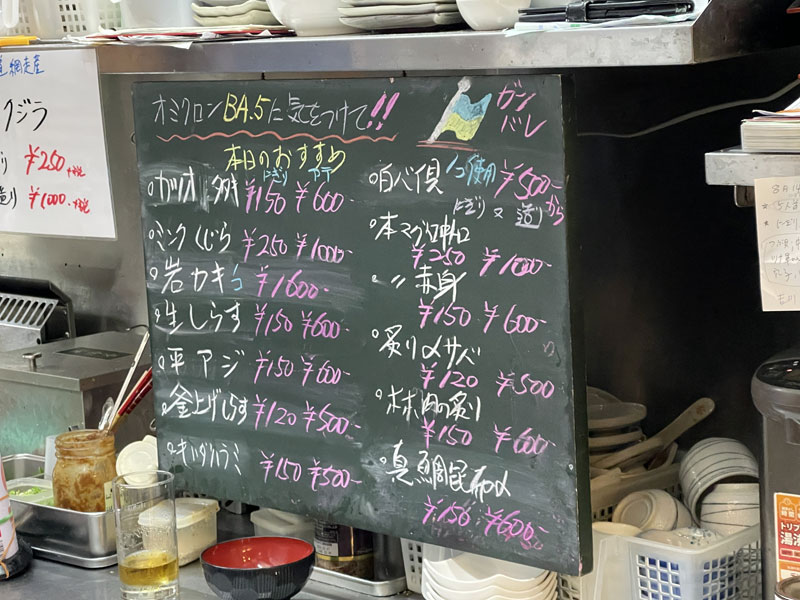 道 網走産
クジラ
¥250+税
¥1000+税
オミクロンBA.5に気をつけて!!
ガン
バレ
本日のおすすめ
にぎり アテ
カツオ ¥150 ¥600-
ミンクくじら ¥250 ¥1000-
岩カキ1コ ¥1600-
生しらす ¥150 ¥600-
平アジ ¥150 ¥600-
釜上げしらす ¥120 ¥500-
キハダハラミ ¥150 ¥500-
1コ使用 ¥500-から
にぎり 又 造り
本マグロ中トロ
¥250 ¥1000-
〃赤身
¥150 ¥600-
炙り〆サバ
¥120 ¥500
ホホ肉の炙り
¥150 ¥600-
真鯛昆布〆
¥150 ¥600-